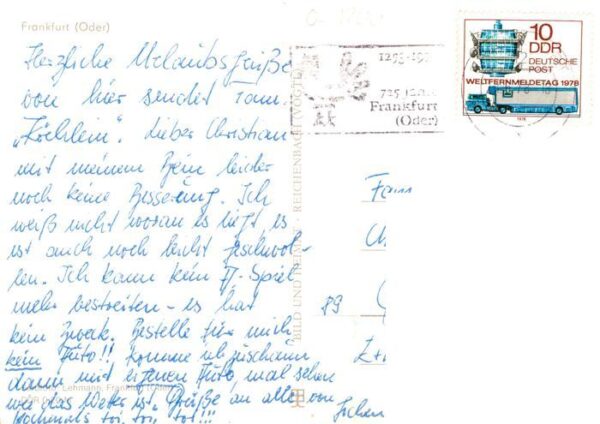 Frankfurt (Oder)
Herzliche Urlaubsgrüße
von hier sendet Fam.
"Köchlein". Lieber Christian
mit meinem Bein leider
noch keine Besserung. Ich
weiß nicht woran es liegt es
ist auch noch leicht geschwol-
len. Ich kann kein Spiel
mehr bestreiten - es hat
kein Zweck. Bestelle für mich
kein Auto!! komme zuschaun
dann mit eigenen Auto, mal sehen
wie das Wetter ist. Grüße an alle von
Nochmals toi, toi, toi!!! Jochen
Lehmann, Frankfurt
DDR
BILD UND HEIMAT REICHENBACH (VOGTL)
1253-19
725 Jahre
Frankfurt
(Oder)
10
DDR
DEUTSCHE
POST
WELTFERNMELDETAG 1978
1978
Fam
Ch
89